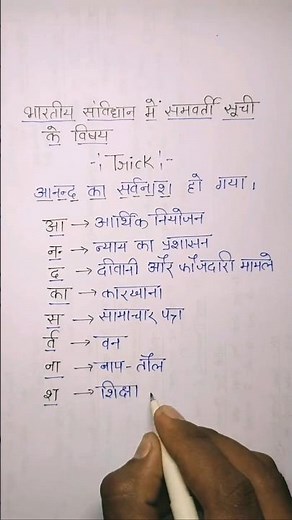 भारतीय संविधान में समवर्ती सूची
के विषय
-: Trick :-
आनन्द का सर्वनाश हो गया।
आ → आर्थिक नियोजन
न → न्याय का प्रशासन
द → दीवानी और फौजदारी मामले
का → कारखाना
स → सामाचार पत्र
र्व → वन
ना → नाप-तौल
श → शिक्षा